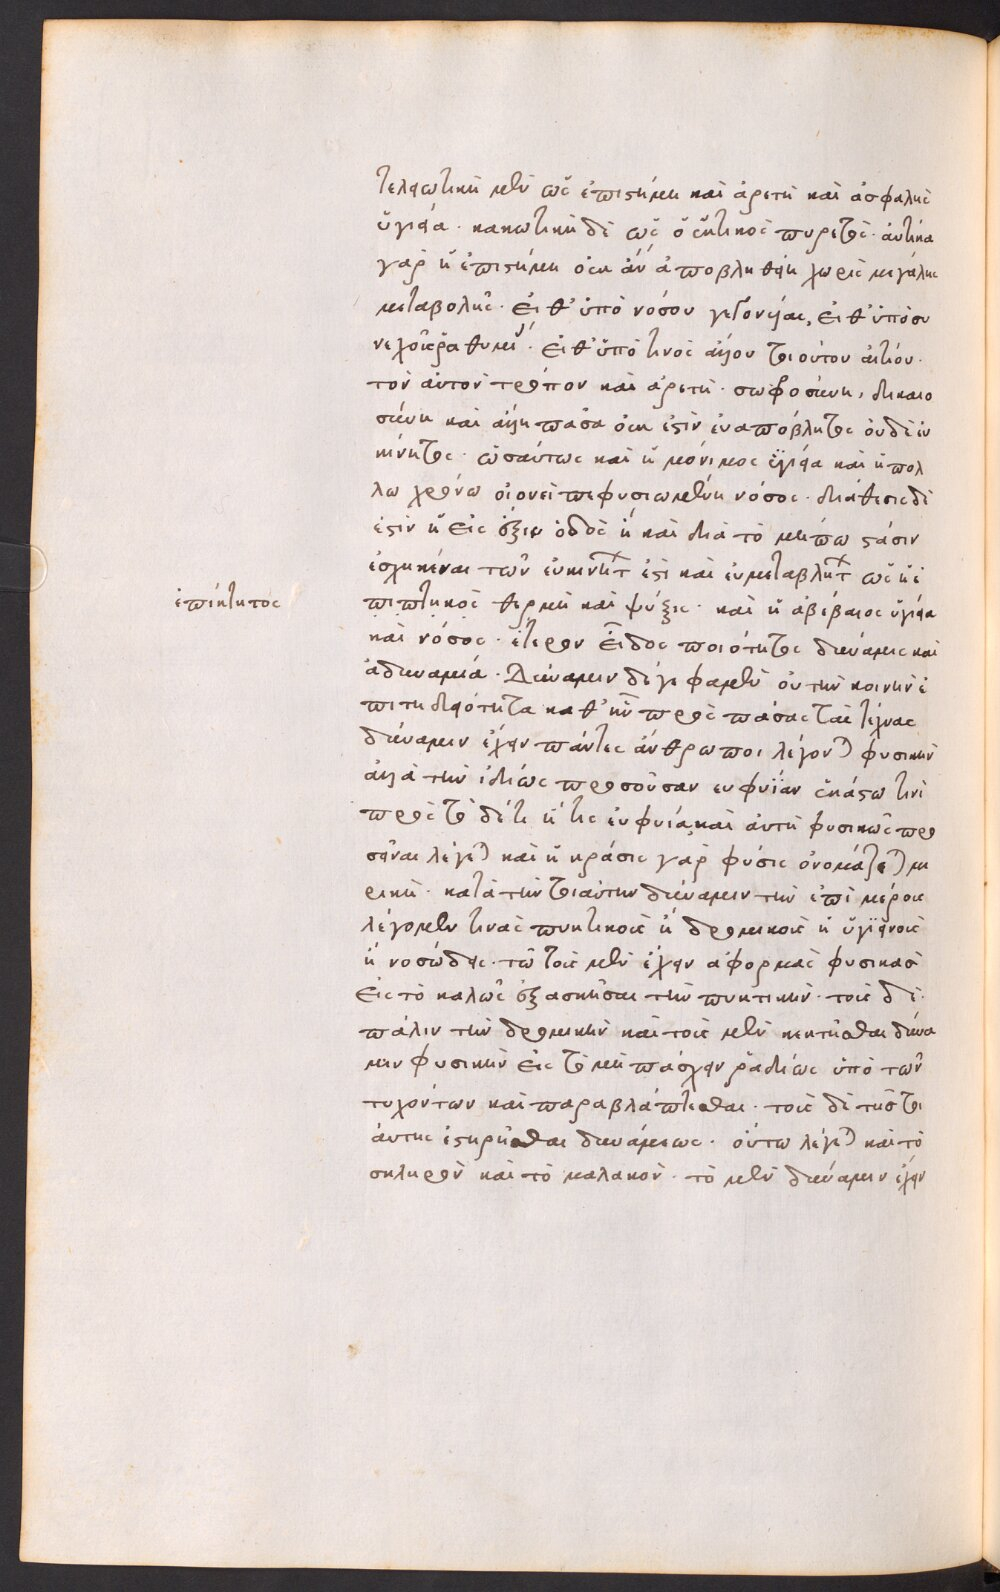 τελειωτικὴ μὲν ὡς ἐπιστήμη καὶ ἀρετὴ καὶ ἀσφαλὴς
ὑγιεία · κακωτικὴ δὲ ὡς ὁ ἑκτικὸς πυρετός · αὐτίκα
γὰρ ἡ ἐπιστήμη οὐκ ἂν ἀποβληθείη χωρὶς μεγάλης
μεταβολῆς · εἴθ' ὑπὸ νόσου γεγονυίας, εἴθ' ὑπὸ συ
νεχοῦς ῥαθυμίας · εἴθ' ὑπό τινος ἄλλου τοιούτου αἰτίου ·
τὸν αὐτὸν τρόπον καὶ ἀρετὴ · σωφροσύνη, δικαιο
σύνη καὶ ἄλλη πᾶσα οὐκ ἔστιν εὐαπόβλητος οὐδὲ εὐ
κίνητος · ὡσαύτως καὶ ἡ μόνιμος ὑγιεία καὶ ἡ πολ
λω χρόνω οἱονεὶ πεφυσιωμένη νόσος · διάθεσις δὲ
ἐστὶν ἡ εἰς ἕξιν ὁδὸς ἣ καὶ διὰ τὸ μήπω στάσιν
ἐσχηκέναι τῶν εὐκινήτ ἐστὶ καὶ εὐμεταβλήτ ὡς ἡ ἐ
πιπτηκὸς θερμὴ καὶ ψύξις · καὶ ἡ ἀβέβαιος ὑγιεία
ἐπίκτητος
καὶ νόσος · ἕτερον εἶδος ποιότητος δύναμις καὶ
ἀδυναμία · Δύναμιν δέ γε φαμὲν οὐ τὴν κοινὴν ἐ
πιτηδειότητα καθ' ἣν πρὸς πάσας τὰς τέχνας
δύναμιν ἔχειν πάντες ἄνθρωποι λέγοντ(αι) φυσικὴν
ἀλλὰ τὴν ἰδίως προσοῦσαν εὐφυΐαν ἑκάστω τινὶ
πρὸς τό δέ τι ἥτις εὐφυία καὶ αὐτὴ φυσικῶς προ
σεῖναι λέγετ(αι) καὶ ἡ κρᾶσις γὰρ φύσις ὀνομάζετ(αι) με
ρικὴ · κατὰ τὴν τοιαύτην δύναμιν τὴν ἐπὶ μέρους
λέγομεν τινὰς πυκτικοὺς ἢ δρομικοὺς ἢ ὑγιεινοὺς
ἢ νοσώδεις · τῶ τοὺς μὲν ἔχειν ἀφορμὰς φυσικὰς
εἰς τὸ καλῶς ἐξασκῆσαι τὴν πυκτικὴν · τοὺς δὲ ·
πάλιν τὴν δρομικὴν καὶ τοὺς μὲν κεκτῆσθαι δύνα
μιν φυσικὴν εἰς τὸ μὴ πάσχειν ῥαδίως ὑπὸ τῶν
τυχόντων καὶ παραβλάπτεσθαι · τοὺς δὲ τῆς τοι
αύτης ἐστερῆσθαι δυνάμεως · οὕτω λέγετ(αι) καὶ τὸ
σκληρὸν καὶ τὸ μαλακὸν · τὸ μὲν δύναμιν ἔχειν